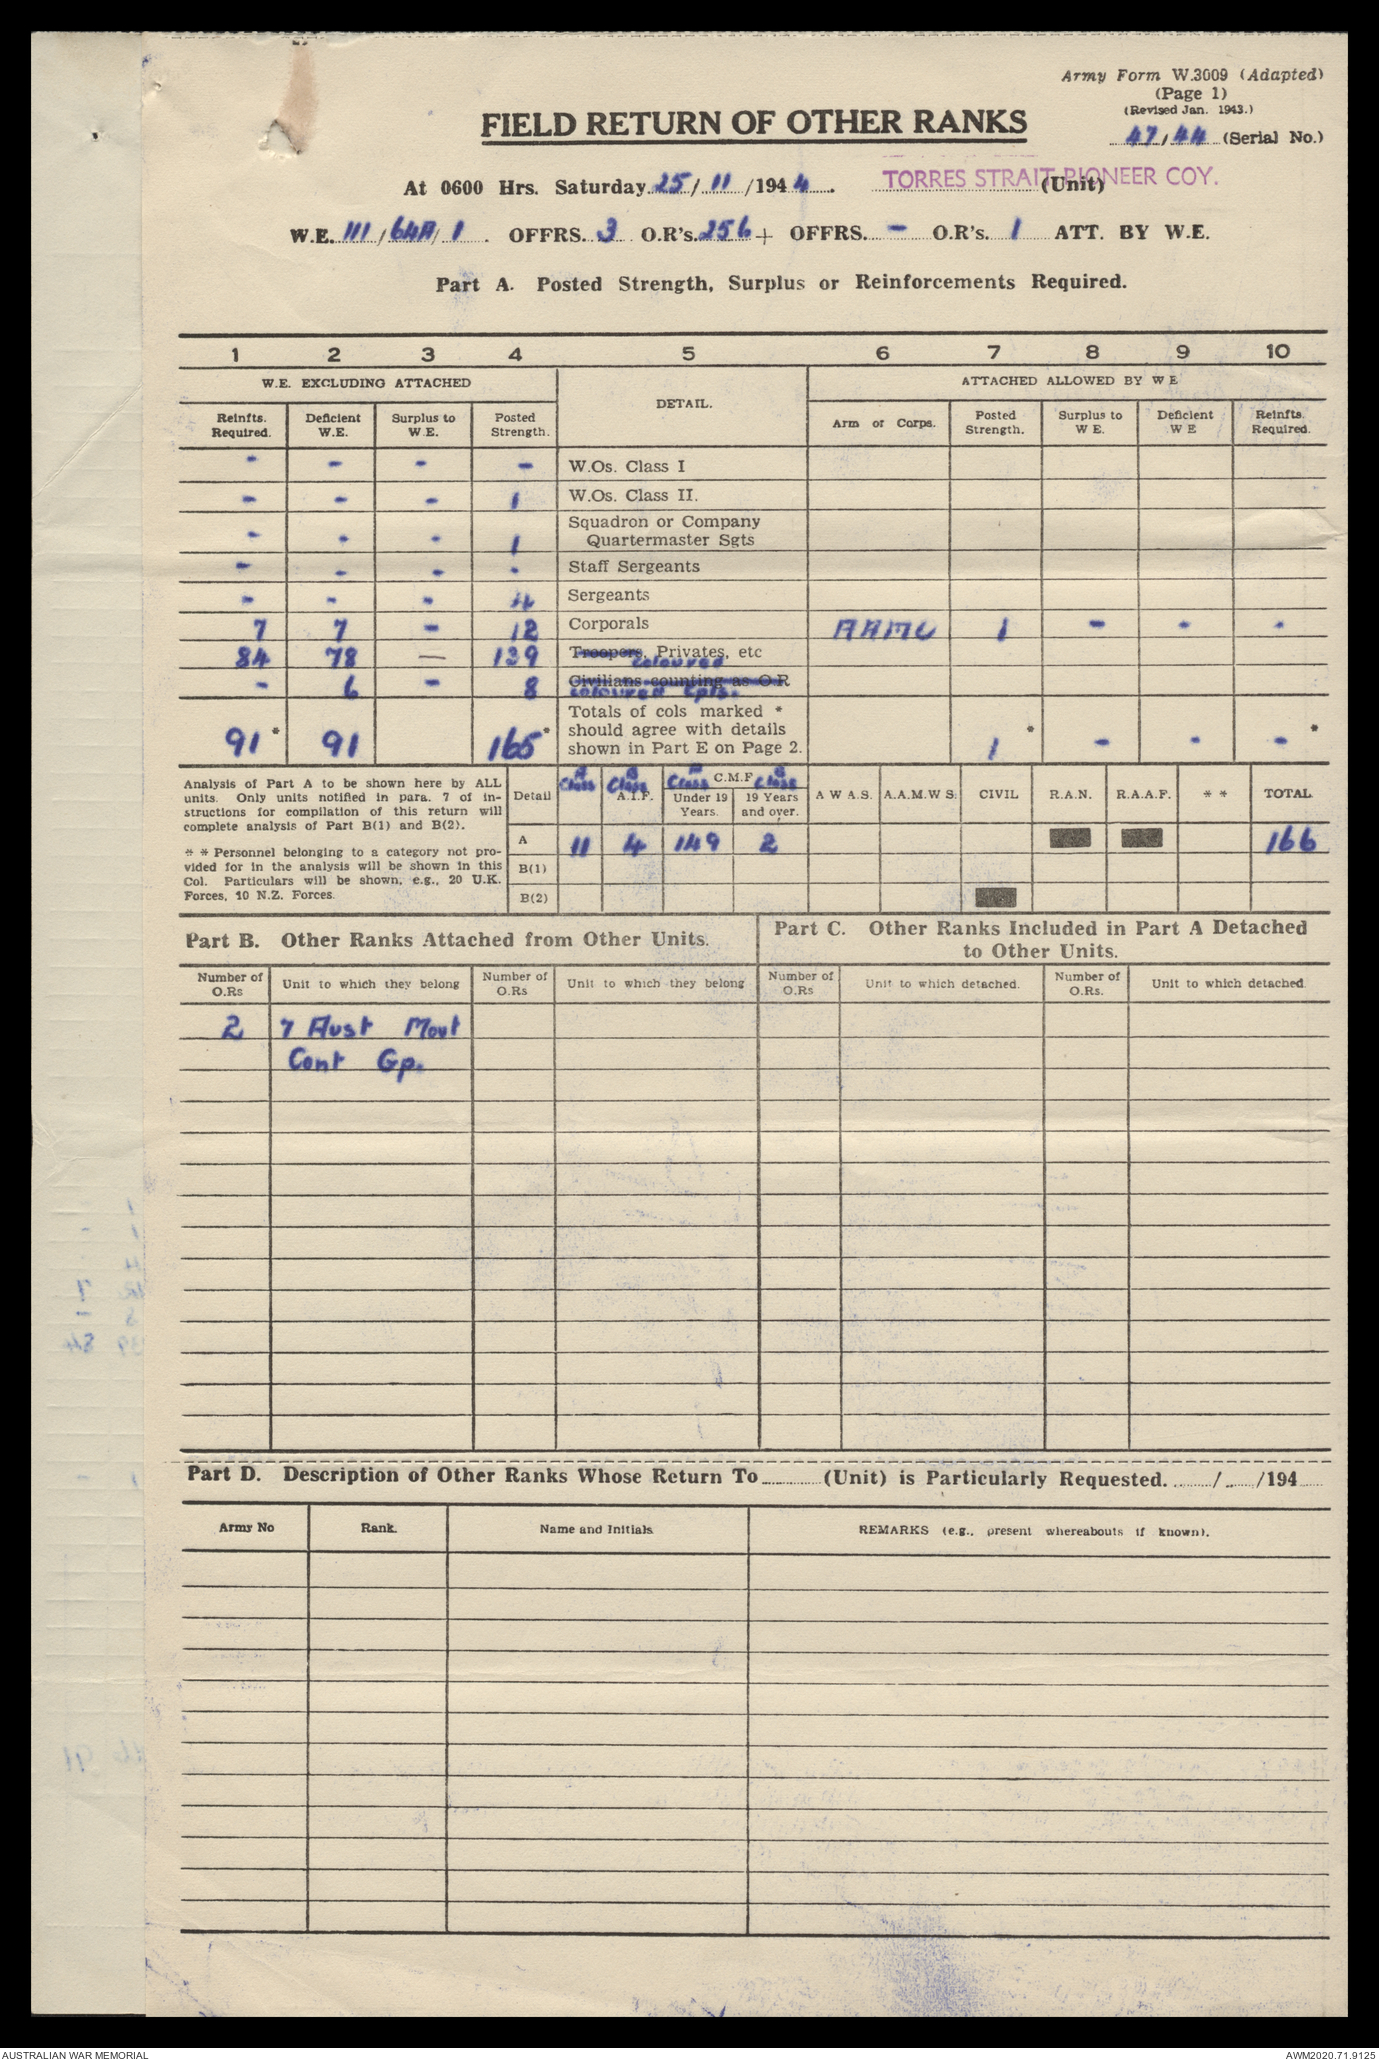 Army Form W.3009 (Adapted)
(Page 1)
(Revised Jan. 1943.)
47/44 (Serial No.)
FIELD RETURN OF OTHER RANKS
At 0600 Hrs. Saturday 25/11/1944. TORRES STRAIT PIONEER COY. (Unit)
W.E. 111/64A/1. OFFRS. 3 O.R's. 256 + OFFRS. - O.R's. 1 ATT. BY W.E.
Part A. Posted Strength, Surplus or Reinforcements Required.
1 2 3 4 5 6 7 8 9 10
W.E. EXCLUDING ATTACHED DETAIL. ATTACHED ALLOWED BY W E
Reinfts. Required. Deficient W.E. Surplus to W.E. Posted Strength. Arm or Corps. Posted Strength. Surplus to W E. Deficient W E Reinfts. Required.
- - - - W.Os. Class I
- - - 1 W.Os. Class II.
- - - 1 Squadron or Company Quartermaster Sgts
- - - - Staff Sergeants
- - - 4 Sergeants
7 7 - 12 Corporals AAMC 1 - - -
84 78 — 139 Troopers, Privates, etc
coloured
- 6 - 8 Civilians counting as O.R
coloured Cpls.
91* 91 165* Totals of cols marked * should agree with details shown in Part E on Page 2. 1* - - -*
Analysis of Part A to be shown here by ALL
units. Only units notified in para. 7 of in-
structions for compilation of this return will
complete analysis of Part B(1) and B(2).
* * Personnel belonging to a category not pro-
vided for in the analysis will be shown in this
Col. Particulars will be shown, e.g., 20 U.K.
Forces, 10 N.Z. Forces.
Detail A Class B Class A.I.F. A Class C.M.F. B Class Under 19 Years. 19 Years and over. A W A.S. A.A.M.W S. CIVIL R.A.N. R.A.A.F. * * TOTAL
A 11 4 149 2 166
B(1)
B(2)
Part B. Other Ranks Attached from Other Units.
Part C. Other Ranks Included in Part A Detached
to Other Units.
Number of O.Rs Unit to which they belong Number of O.Rs Unit to which they belong Number of O.Rs Unit to which detached. Number of O.Rs. Unit to which detached
2 7 Aust Movt
Cont Gp.
Part D. Description of Other Ranks Whose Return To ......... (Unit) is Particularly Requested. ....../....../194......
Army No Rank. Name and Initials REMARKS (e.g., present whereabouts if known).
AUSTRALIAN WAR MEMORIAL
AWM2020.71.9125